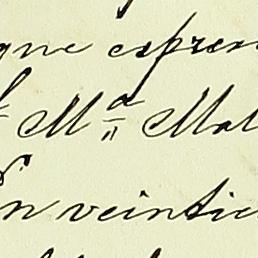 que espres
Mª Mal
n veintic